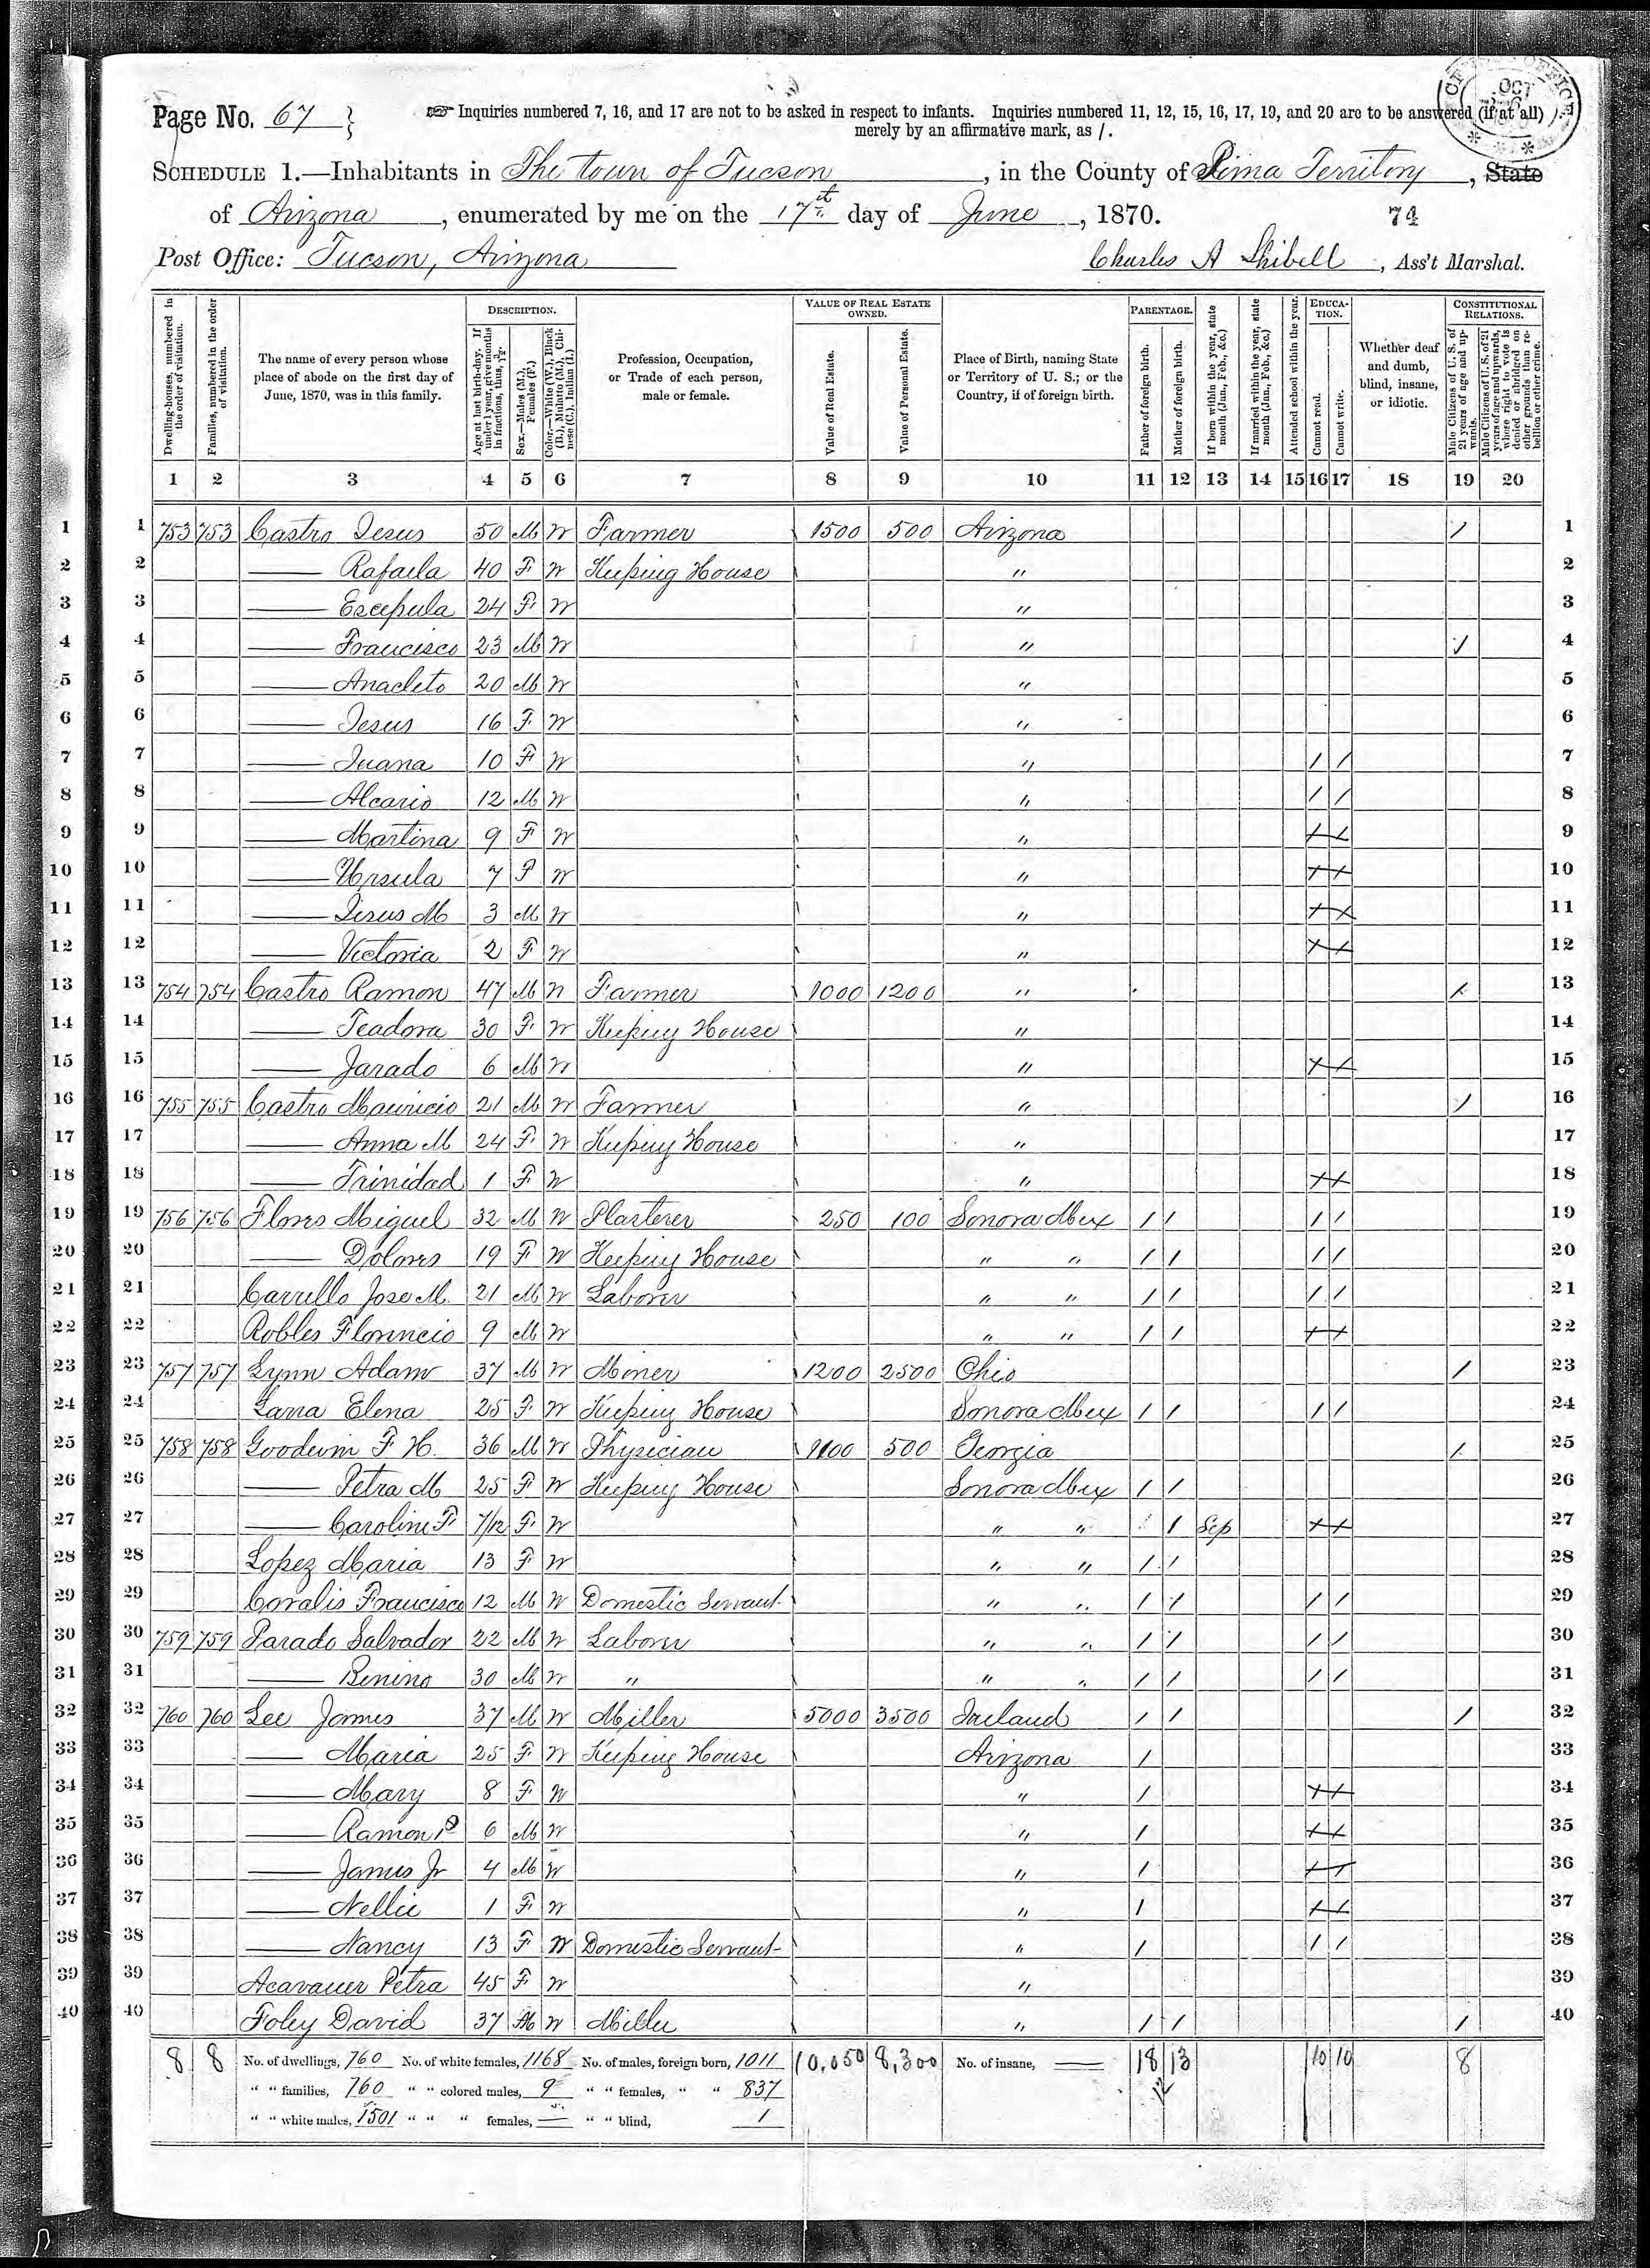 Page No. 67
☞ Inquiries numbered 7, 16, and 17 are not to be asked in respect to infants. Inquiries numbered 11, 12, 15, 16, 17, 19, and 20 are to be answered (if at all)
merely by an affirmative mark, as /.
OCT
SCHEDULE 1.—Inhabitants in The town of Tucson, in the County of Pima Territory, State
of Arizona, enumerated by me on the 17th day of June, 1870.
74
Post Office: Tucson, Arizona
Charles A Shibell, Ass't Marshal.
Dwelling-houses, numbered in the order of visitation.
Families, numbered in the order of visitation.
The name of every person whose place of abode on the first day of June, 1870, was in this family.
DESCRIPTION.
Age at last birth-day. If under 1 year, give months in fractions, thus, 3/12.
Sex.—Males (M.), Females (F.)
Color.—White (W.), Black (B.), Mulatto (M.), Chinese (C.), Indian (I.)
Profession, Occupation, or Trade of each person, male or female.
VALUE OF REAL ESTATE OWNED.
Value of Real Estate.
Value of Personal Estate.
Place of Birth, naming State or Territory of U. S.; or the Country, if of foreign birth.
PARENTAGE.
Father of foreign birth.
Mother of foreign birth.
If born within the year, state month (Jan., Feb., &c.)
If married within the year, state month (Jan., Feb., &c.)
Attended school within the year.
EDUCATION.
Cannot read.
Cannot write.
Whether deaf and dumb, blind, insane, or idiotic.
CONSTITUTIONAL RELATIONS.
Male Citizens of U. S. of 21 years of age and upwards.
Male Citizens of U. S. of 21 years of age and upwards, where right to vote is denied or abridged on other grounds than rebellion or other crime.
1 2 3 4 5 6 7 8 9 10 11 12 13 14 15 16 17 18 19 20
1 1 753 753 Castro Jesus 50 M W Farmer 1500 500 Arizona / 1
2 2 —— Rafaela 40 F W Keeping House " 2
3 3 —— Escepula 24 F W " 3
4 4 —— Francisco 23 M W " / 4
5 5 —— Anacleto 20 M W " 5
6 6 —— Jesus 16 F W " 6
7 7 —— Juana 10 F W " / / 7
8 8 —— Alcario 12 M W " / / 8
9 9 —— Martina 9 F W " / / 9
10 10 —— Ursula 7 F W " / / 10
11 11 —— Jesus M 3 M W " / / 11
12 12 —— Victoria 2 F W " / / 12
13 13 754 754 Castro Ramon 47 M W Farmer 1000 1200 " / 13
14 14 —— Teadora 30 F W Keeping House " 14
15 15 —— Jarado 6 M W " / / 15
16 16 755 755 Castro Mauricio 21 M W Farmer " / 16
17 17 —— Anna M 24 F W Keeping House " 17
18 18 —— Trinidad 1 F W " / / 18
19 19 756 756 Flores Miguel 32 M W Plasterer 250 100 Sonora Mex / / / / 19
20 20 —— Dolores 19 F W Keeping House " " / / / / 20
21 21 Carrillo Jose M. 21 M W Laborer " " / / / / 21
22 22 Robles Florencio 9 M W " " / / / / 22
23 23 757 757 Lynn Adam 37 M W Miner 1200 2500 Ohio / 23
24 24 Lana Elena 25 F W Keeping House Sonora Mex / / / / 24
25 25 758 758 Goodwin F H. 36 M W Physician 1100 500 Georgia / 25
26 26 —— Petra M 25 F W Keeping House Sonora Mex / / 26
27 27 —— Caroline F 7/12 F W " " / Sep / / 27
28 28 Lopez Maria 13 F W " " / / 28
29 29 Corralis Francisco 12 M W Domestic Servant " " / / / / 29
30 30 759 759 Parado Salvador 22 M W Laborer " " / / / / 30
31 31 —— Benino 30 M W " " " / / / / 31
32 32 760 760 Lee James 37 M W Miller 5000 3500 Ireland / / / 32
33 33 —— Maria 25 F W Keeping House Arizona / 33
34 34 —— Mary 8 F W " / / / 34
35 35 —— Ramon P 6 M W " / / / 35
36 36 —— James Jr 4 M W " / / / 36
37 37 —— Nellie 1 F W " / / / 37
38 38 —— Nancy 13 F W Domestic Servant " / / / 38
39 39 Petra 45 F W " 39
40 40 Foley David 37 M W Miller " / / / 40
8 8 No. of dwellings, 760 No. of white females, 1168 No. of males, foreign born, 1011 10,050 8,300 No. of insane, —— 18 13 10 10 8
" " families, 760 " " colored males, 9 " " females, " " 837
" " white males, 1501 " " " females, — " " blind, 1